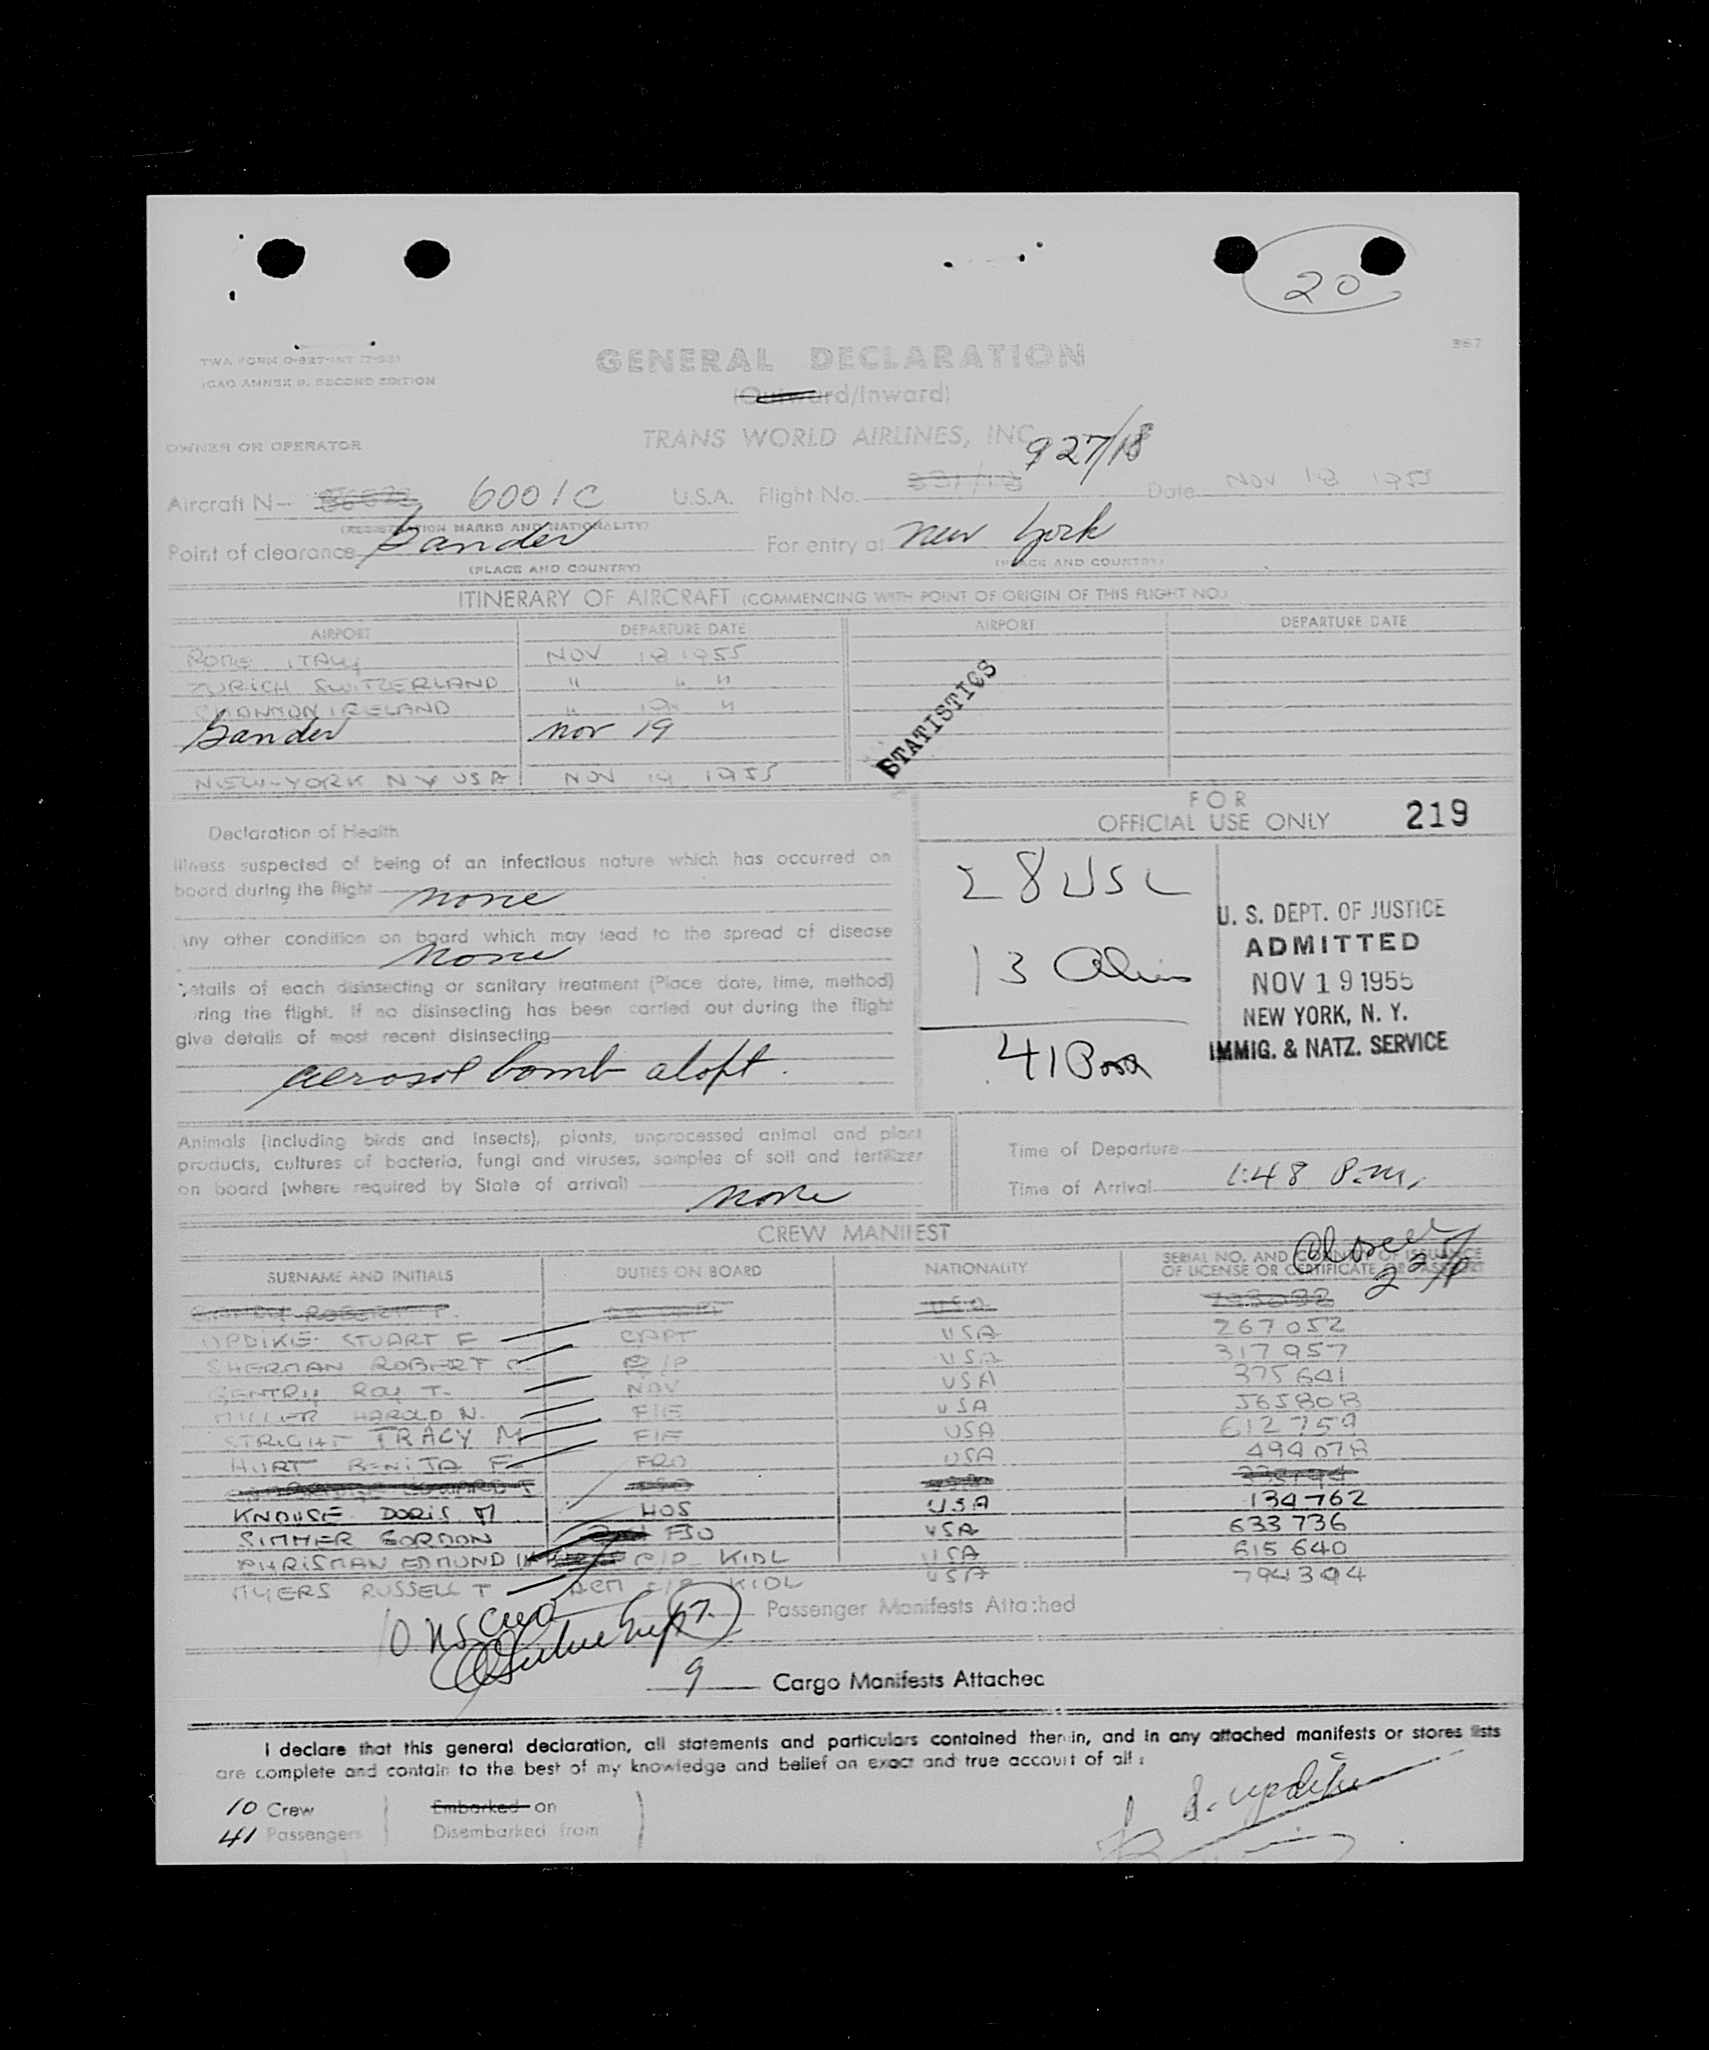 20
TWA FORM O-827-INT
ICAO ANNEX 9, SECOND EDITION
367
GENERAL DECLARATION
(Outward/Inward)
OWNER OR OPERATOR
TRANS WORLD AIRLINES, INC.
927/18
Aircraft N- 6001C U.S.A. Flight No. 931/18 Date NOV 18 1955
(REGISTRATION MARKS AND NATIONALITY)
Point of clearance Gander For entry at New York
(PLACE AND COUNTRY) (PLACE AND COUNTRY)
ITINERARY OF AIRCRAFT (COMMENCING WITH POINT OF ORIGIN OF THIS FLIGHT NO.)
AIRPORT DEPARTURE DATE AIRPORT DEPARTURE DATE
ROME ITALY NOV 18 1955
ZURICH SWITZERLAND " " "
SHANNON IRELAND " 19 "
Gander Nov 19
NEW-YORK NY USA NOV 19 1955
STATISTICS
FOR
OFFICIAL USE ONLY 219
Declaration of Health
Illness suspected of being of an infectious nature which has occurred on
board during the flight none
Any other condition on board which may lead to the spread of disease
None
Details of each disinsecting or sanitary treatment (Place date, time, method)
during the flight. If no disinsecting has been carried out during the flight
give details of most recent disinsecting
aerosol bomb aloft.
28 USC
13 Aliens
41 Pass
U. S. DEPT. OF JUSTICE
ADMITTED
NOV 19 1955
NEW YORK, N. Y.
IMMIG. & NATZ. SERVICE
Animals (including birds and insects), plants, unprocessed animal and plant
products, cultures of bacteria, fungi and viruses, samples of soil and fertilizer
on board (where required by State of arrival) none
Time of Departure
Time of Arrival 1:48 P.M.
CREW MANIFEST
SURNAME AND INITIALS DUTIES ON BOARD NATIONALITY SERIAL NO. AND COUNTRY OF ISSUANCE
OF LICENSE OR CERTIFICATE OR PASSPORT
ROBERT P. USA
UPDIKE STUART F CAPT USA 267052
SHERMAN ROBERT /P USA 317957
GENTRY ROY T. NAV USA 375641
MILLER HAROLD N. F/E USA 565808
STRIGHT TRACY M F/E USA 612759
HURT BENITA F FRO USA 494078
KNOUSE DORIS M HOS USA 134762
SIMMER GORDON USA 633736
CHRISMAN EDMUND KIDL USA 615640
MYERS RUSSELL T KIDL USA 794394
10 US Crew
7 Passenger Manifests Attached
9 Cargo Manifests Attached
I declare that this general declaration, all statements and particulars contained therein, and in any attached manifests or stores lists
are complete and contain to the best of my knowledge and belief an exact and true account of all:
10 Crew Embarked on
41 Passengers Disembarked from
S. Updike